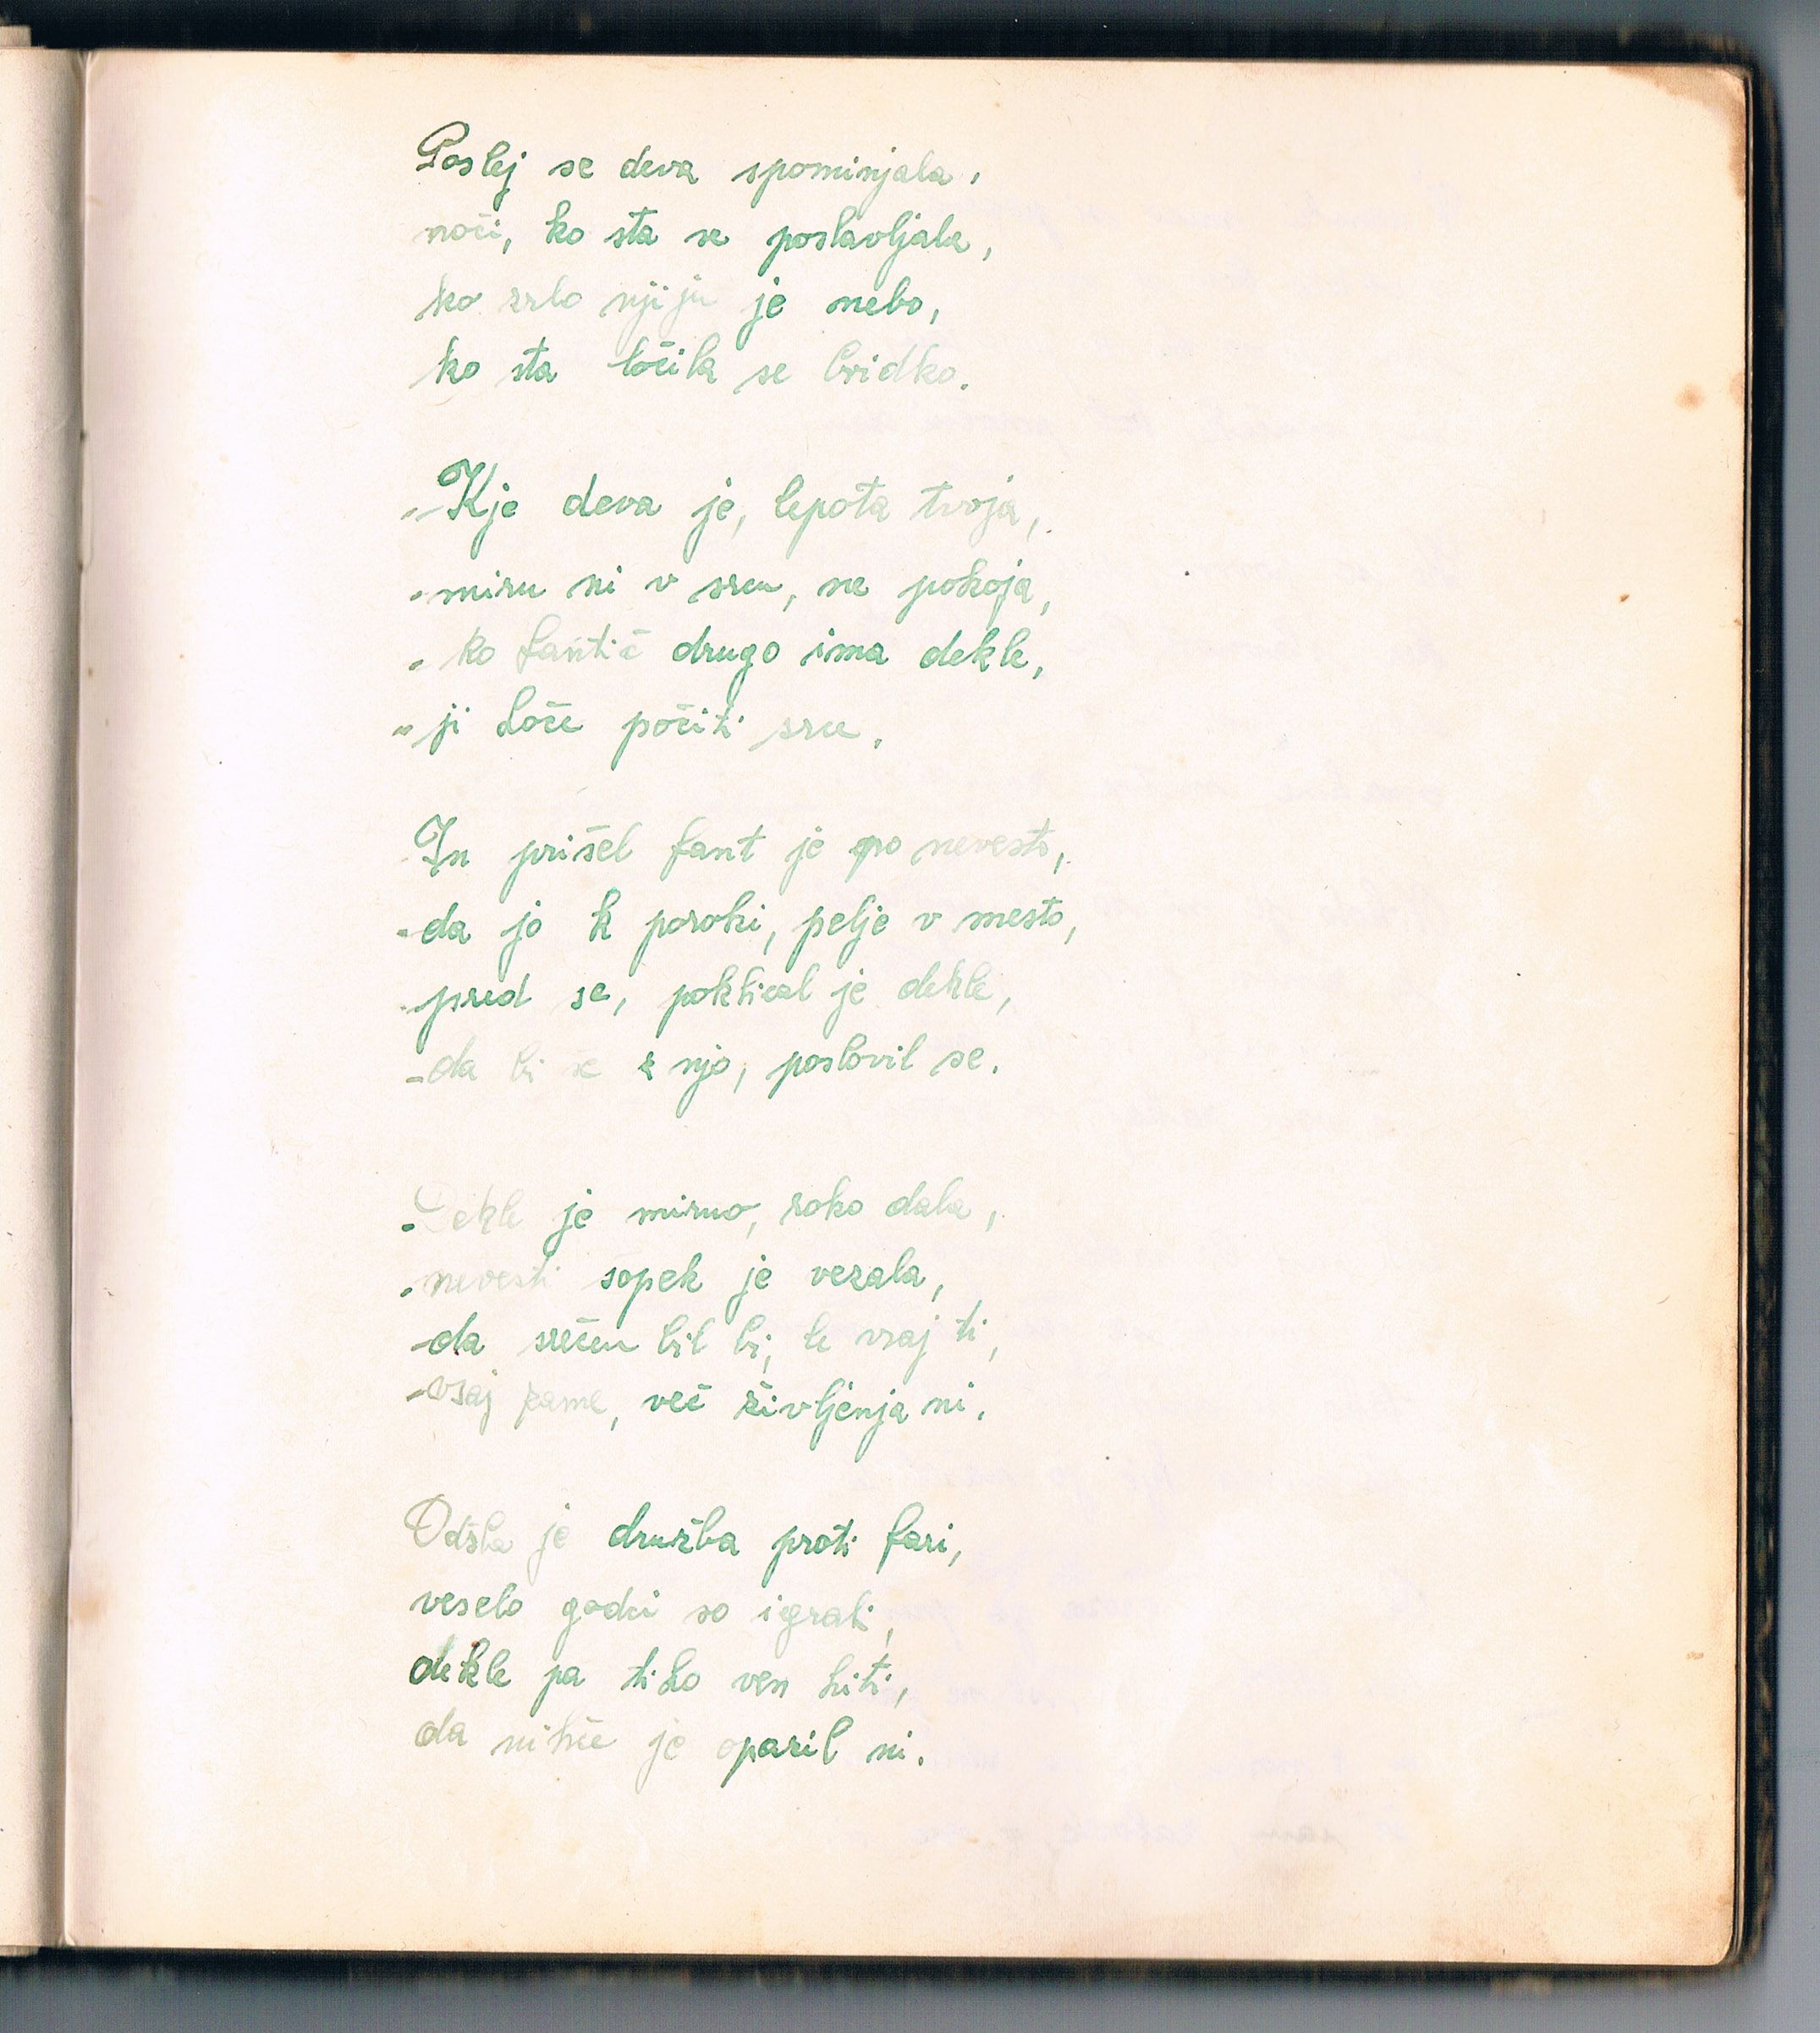 Poslej se deva spominjala,
noči, ko sta se poslavljala,
ko zrlo njiju je nebo,
ko sta ločila se bridko.
"Kje deva je, lepota tvoja,
miru ni v srcu, ne pokoja,
ko fantič drugo ima dekle,
ji hoče počiti srce.
In prišel fant je po nevesto,
da jo k poroki, pelje v mesto,
pred se, poklical je dekle,
da bi še z njo, poslovil se.
Dekle je mirno, roko dala,
nevesti šopek je vezala,
da srečen bil bi, le vsaj ti,
vsaj zame, več življenja ni.
Odšla je družba proti fari,
veselo godci so igrali,
dekle pa tiho ven hiti,
da nihče je opazil ni.